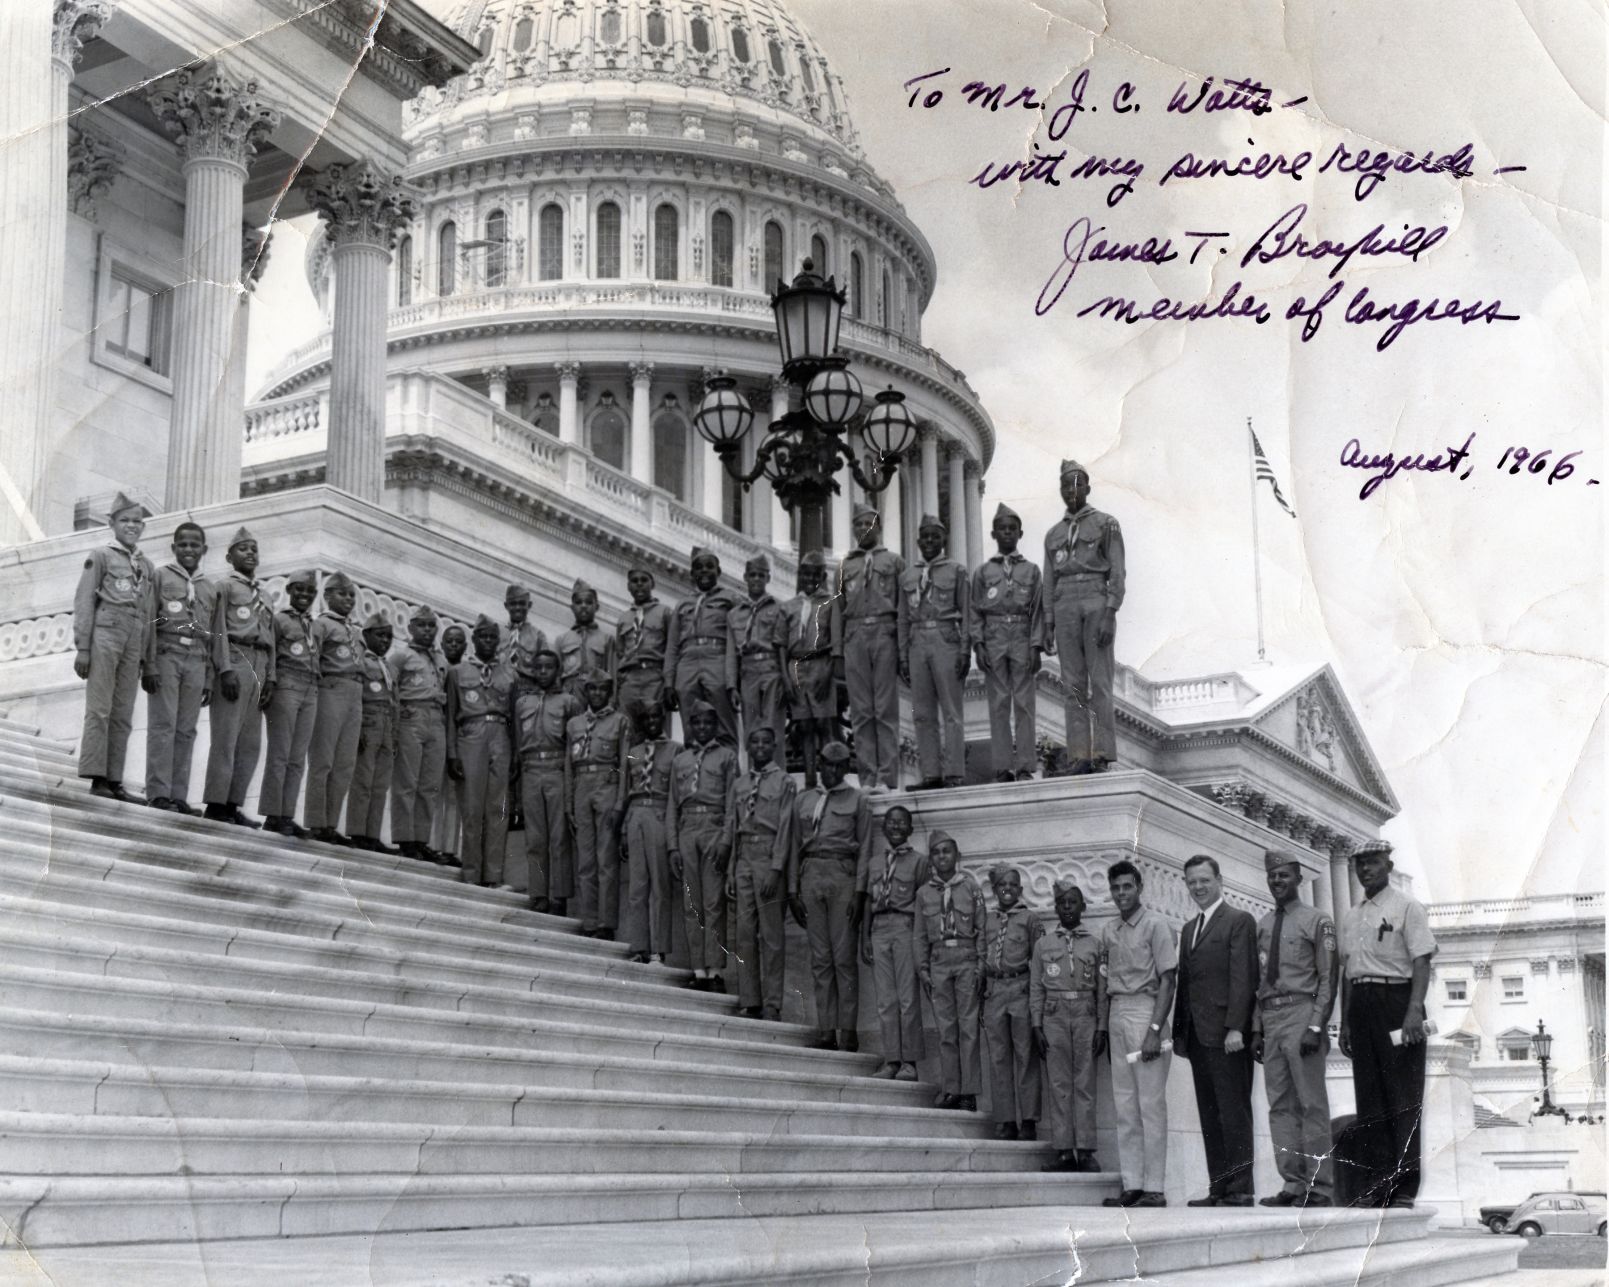 To Mr. J. C. Watts –
with my sincere regards –
James T. Broyhill
member of Congress
August, 1966.